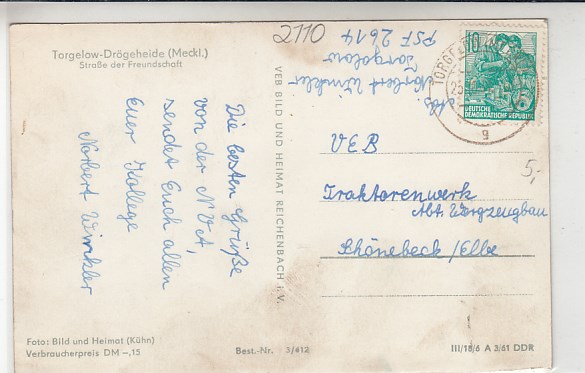 Torgelow-Drögeheide (Meckl.)
Straße der Freundschaft
Die besten Grüße
von der NVA,
sendet Euch allen
Euer Kollege
Norbert Winkler
Foto: Bild und Heimat (Kühn)
Verbraucherpreis DM -,15
Best.-Nr. 3/412
VEB BILD UND HEIMAT REICHENBACH i. V.
2110
Abs. Norbert Winkler
Torgelow
PSF 2614
10
DEUTSCHE
DEMOKRATISCHE REPUBLIK
9
VEB
Traktorenwerk
Abt. Wergzeugbau
Schönebeck/Elbe
5,-
III/18/6 A 3/61 DDR